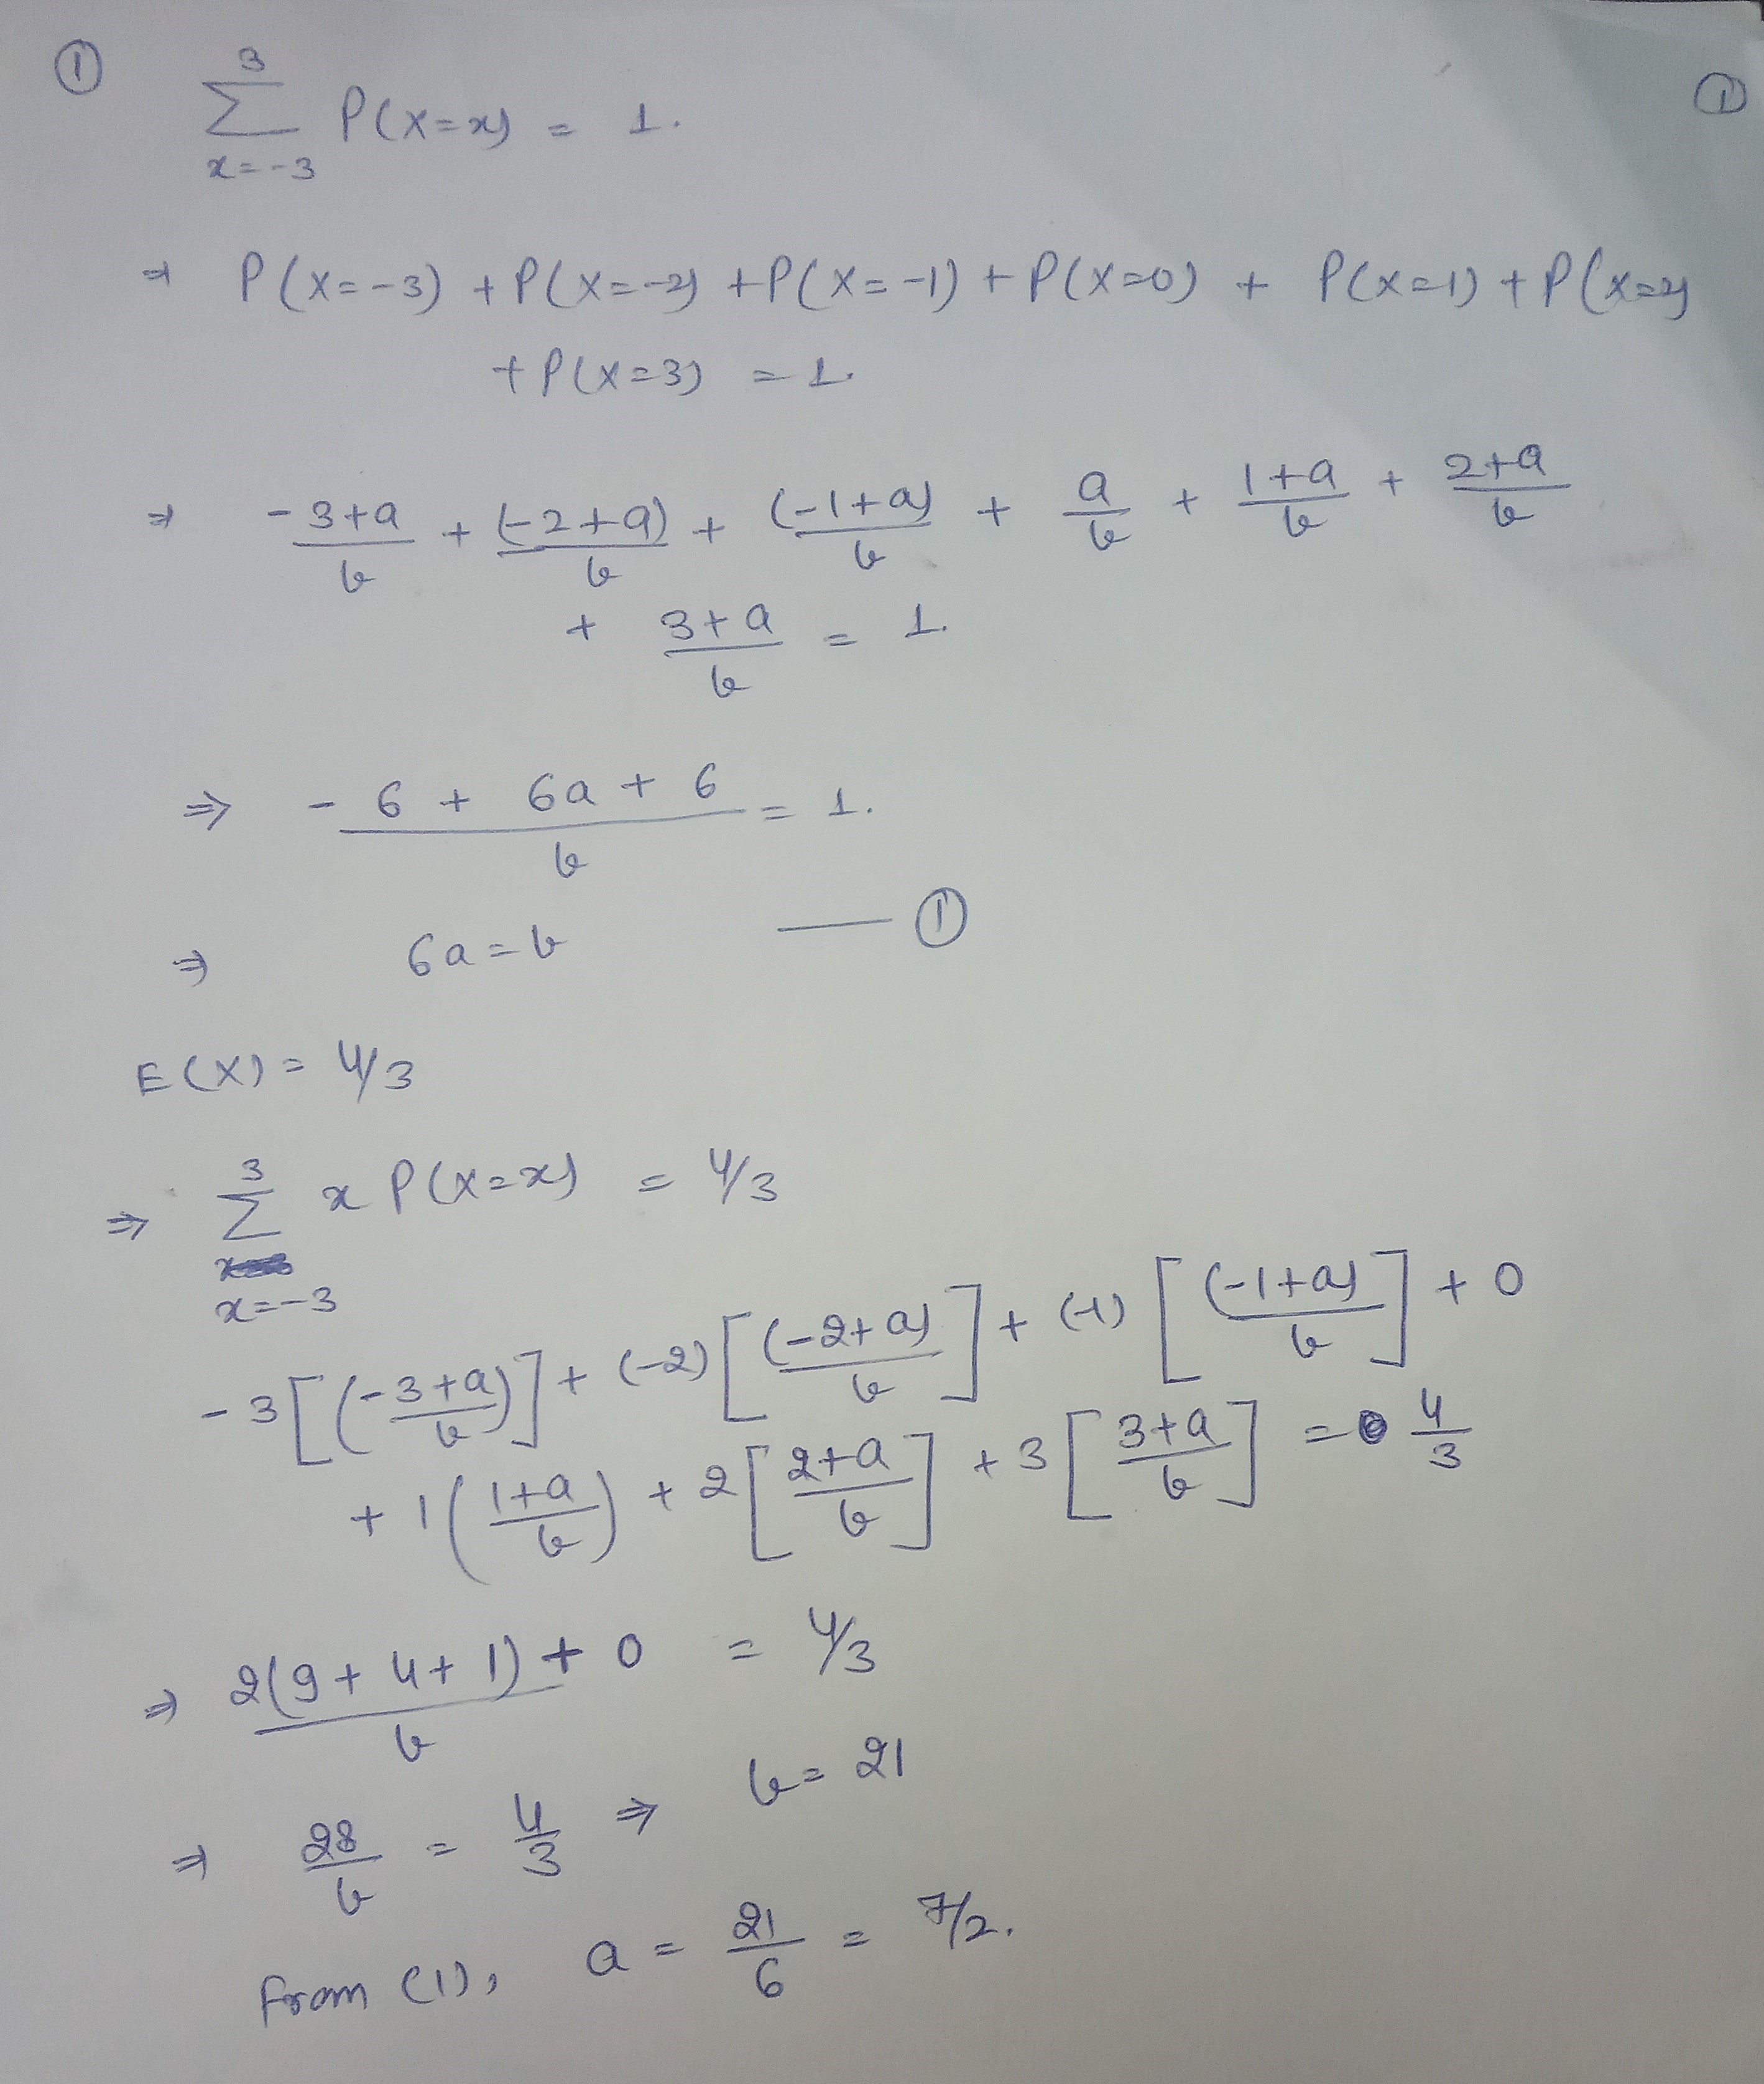 ① ①
3
∑ P(X=x) = 1.
x=-3
⇒ P(X=-3) + P(X=-2) + P(X=-1) + P(X=0) + P(X=1) + P(X=2)
+ P(X=3) = 1.
⇒ (-3+a)/b + (-2+a)/b + (-1+a)/b + a/b + (1+a)/b + (2+a)/b
+ (3+a)/b = 1.
⇒ (-6 + 6a + 6)/b = 1.
⇒ 6a = b —— ①
E(X) = 4/3
3
⇒ ∑ x P(X=x) = 4/3
x=-3
-3[(-3+a)/b] + (-2)[(-2+a)/b] + (-1)[(-1+a)/b] + 0
+ 1((1+a)/b) + 2[(2+a)/b] + 3[(3+a)/b] = 4/3
⇒ (2(9+4+1) + 0)/b = 4/3
⇒ 28/b = 4/3 ⇒ b = 21
From (1), a = 21/6 = 7/2.